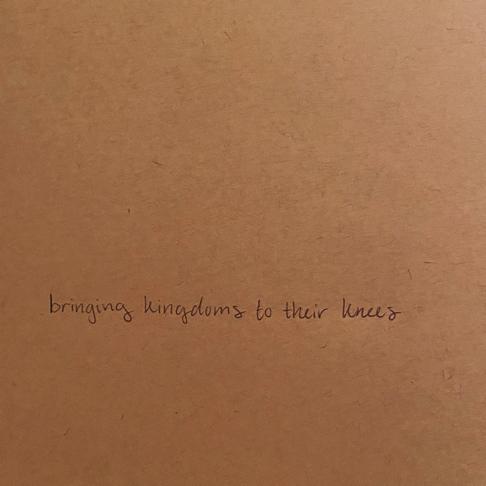 bringing kingdoms to their knees